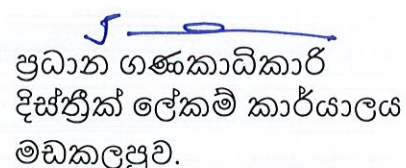 ප්‍රධාන ගණකාධිකාරි
දිස්ත්‍රික් ලේකම් කාර්යාලය
මඩකලපුව.